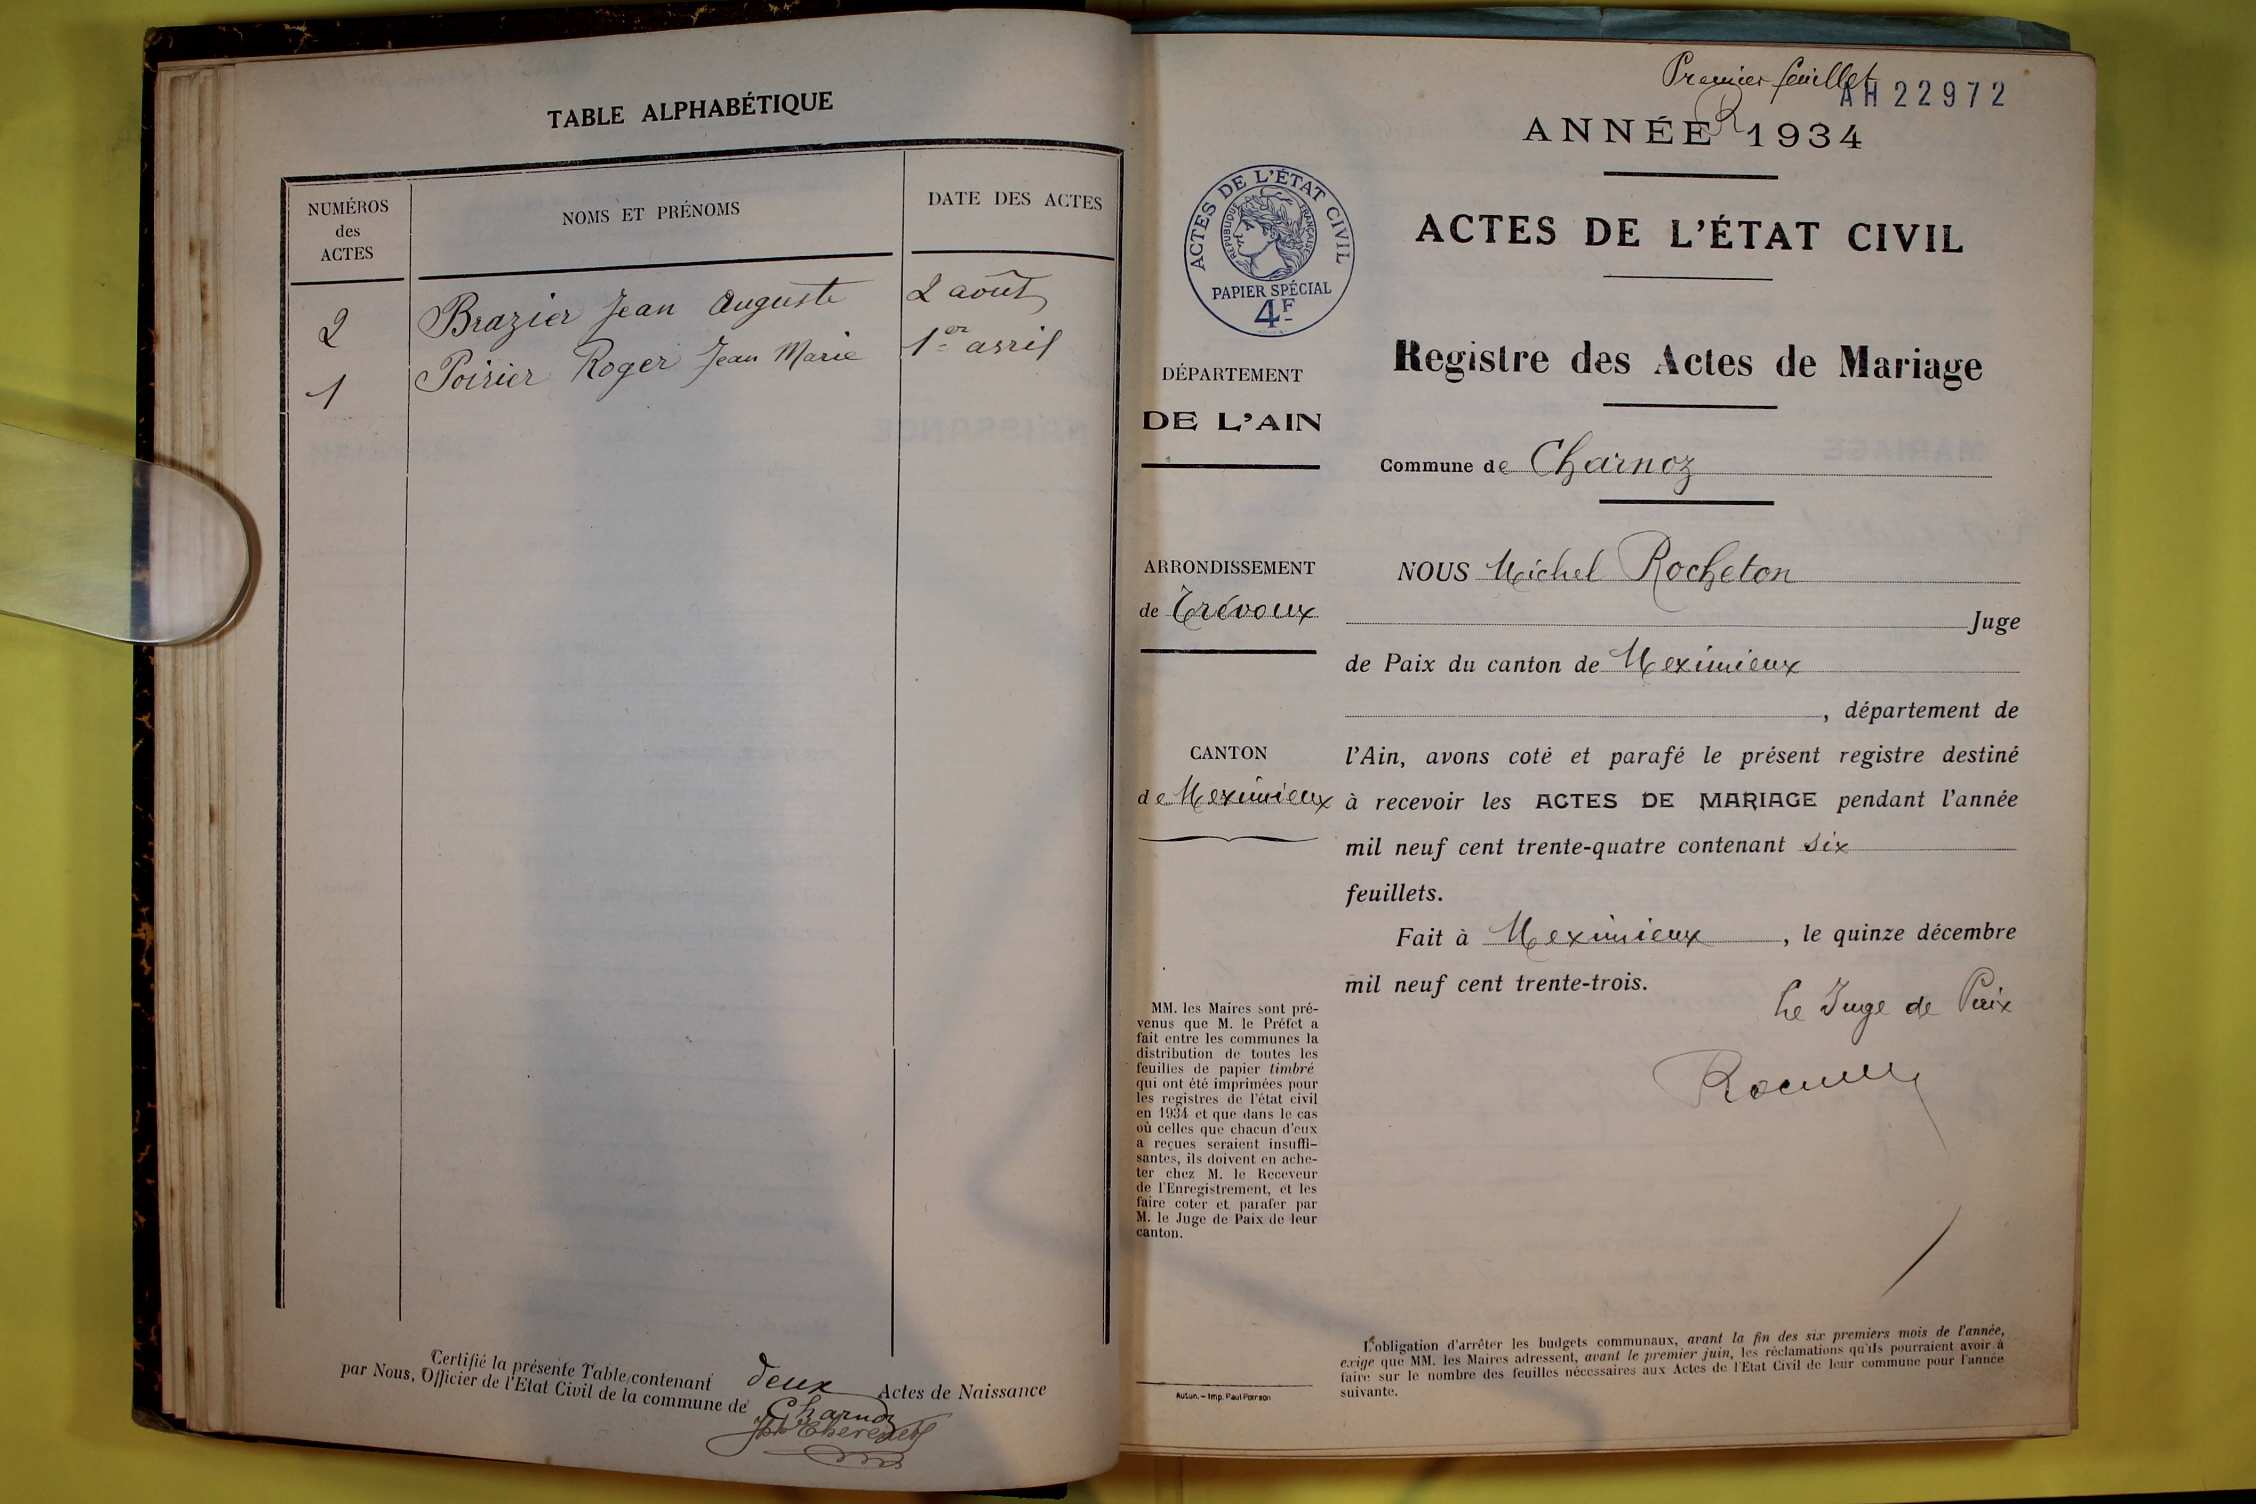 TABLE ALPHABÉTIQUE
NUMÉROS
des
ACTES
NOMS ET PRÉNOMS
DATE DES ACTES
2 Brazier Jean Auguste 2 août
1 Poirier Roger Jean Marie 1er avril
Certifié la présente Table contenant deux Actes de Naissance
par Nous, Officier de l'Etat Civil de la commune de Charnoz
Premier feuillet
AH 22972
R
ANNÉE 1934
ACTES DE L'ÉTAT CIVIL
RÉPUBLIQUE FRANÇAISE
PAPIER SPÉCIAL
4F
ACTES DE L'ÉTAT CIVIL
Registre des Actes de Mariage
Commune de Charnoz
DÉPARTEMENT
DE L'AIN
ARRONDISSEMENT
de Trévoux
CANTON
de Meximieux
MM. les Maires sont pré-
venus que M. le Préfet a
fait entre les communes la
distribution de toutes les
feuilles de papier timbré
qui ont été imprimées pour
les registres de l'état civil
en 1934 et que dans le cas
où celles que chacun d'eux
a reçues seraient insuffi-
santes, ils doivent en ache-
ter chez M. le Receveur
de l'Enregistrement, et les
faire coter et parafer par
M. le Juge de Paix de leur
canton.
Autun. - Imp. Paul Poirson
NOUS Michel Rocheton
Juge
de Paix du canton de Meximieux
, département de
l'Ain, avons coté et parafé le présent registre destiné
à recevoir les ACTES DE MARIAGE pendant l'année
mil neuf cent trente-quatre contenant six
feuillets.
Fait à Meximieux, le quinze décembre
mil neuf cent trente-trois.
Le Juge de Paix
L'obligation d'arrêter les budgets communaux, avant la fin des six premiers mois de l'année,
exige que MM. les Maires adressent, avant le premier juin, les réclamations qu'ils pourraient avoir à
faire sur le nombre des feuilles nécessaires aux Actes de l'Etat Civil de leur commune pour l'année
suivante.